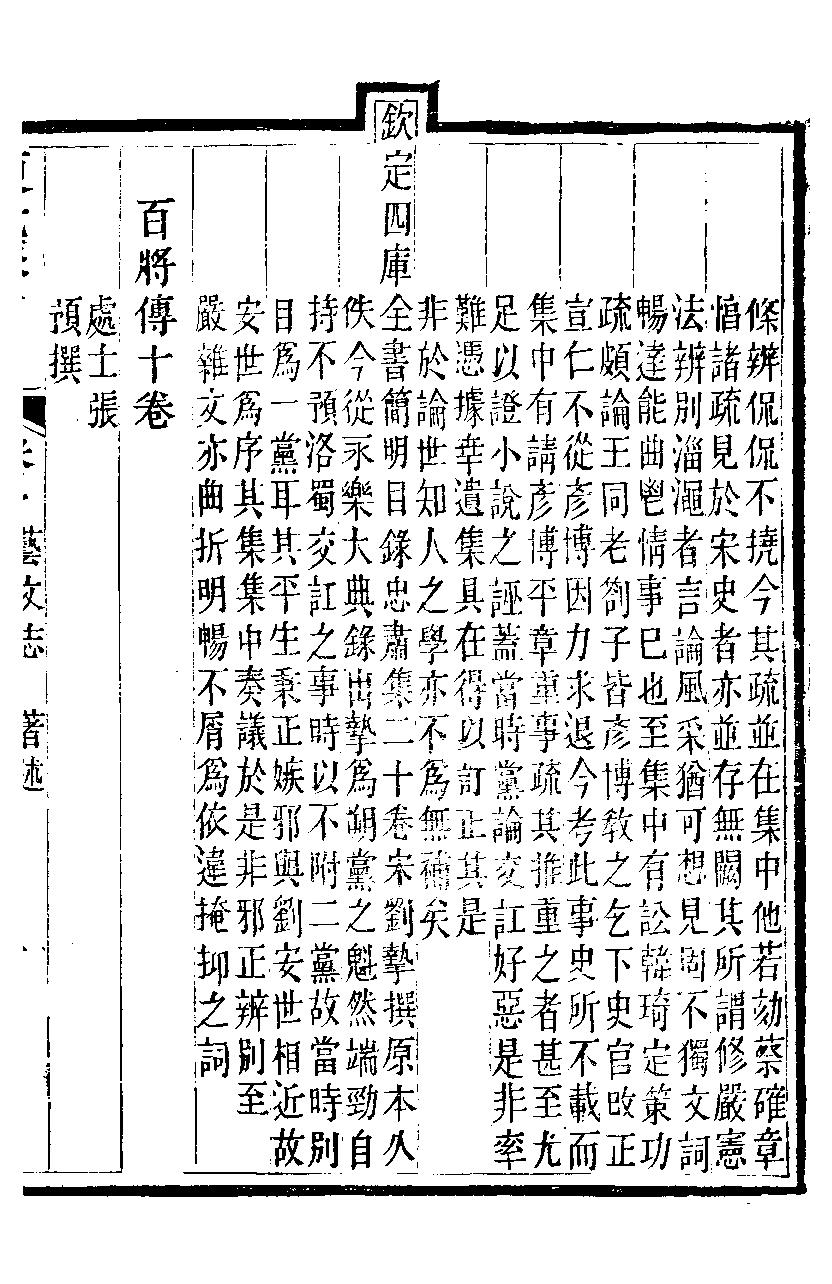 條辨侃侃不撓今其疏並在集中他若劾蔡確章
惇諸疏見於宋史者亦並存無闕其所謂修嚴憲
法辨别淄澠者言論風采猶可想見固不獨文詞
暢達能曲鬯情事已也至集中有訟韓琦定策功
疏頗論王同老劄子皆彥博敎之乞下史官改正
宣仁不從彥博因力求退今考此事史所不載而
集中有請彥博平章重事疏其推重之者甚至尤
足以證小說之誣蓋當時黨論交訌好惡是非率
難憑據幸遺集具在得以訂正其是
非於論世知人之學亦不爲無補矣
欽定四庫全書簡明目錄忠肅集二十卷宋劉摯撰原本久
佚今從永樂大典錄出摯爲朔黨之魁然端勁自
持不預洛蜀交訌之事時以不附二黨故當時别
目爲一黨耳其平生秉正嫉邪與劉安世相近故
安世爲序其集集中奏議於是非邪正辨别至
嚴雜文亦曲折明暢不屑爲依違掩抑之詞
百將傳十卷
處士張
預撰
藝文志 著述